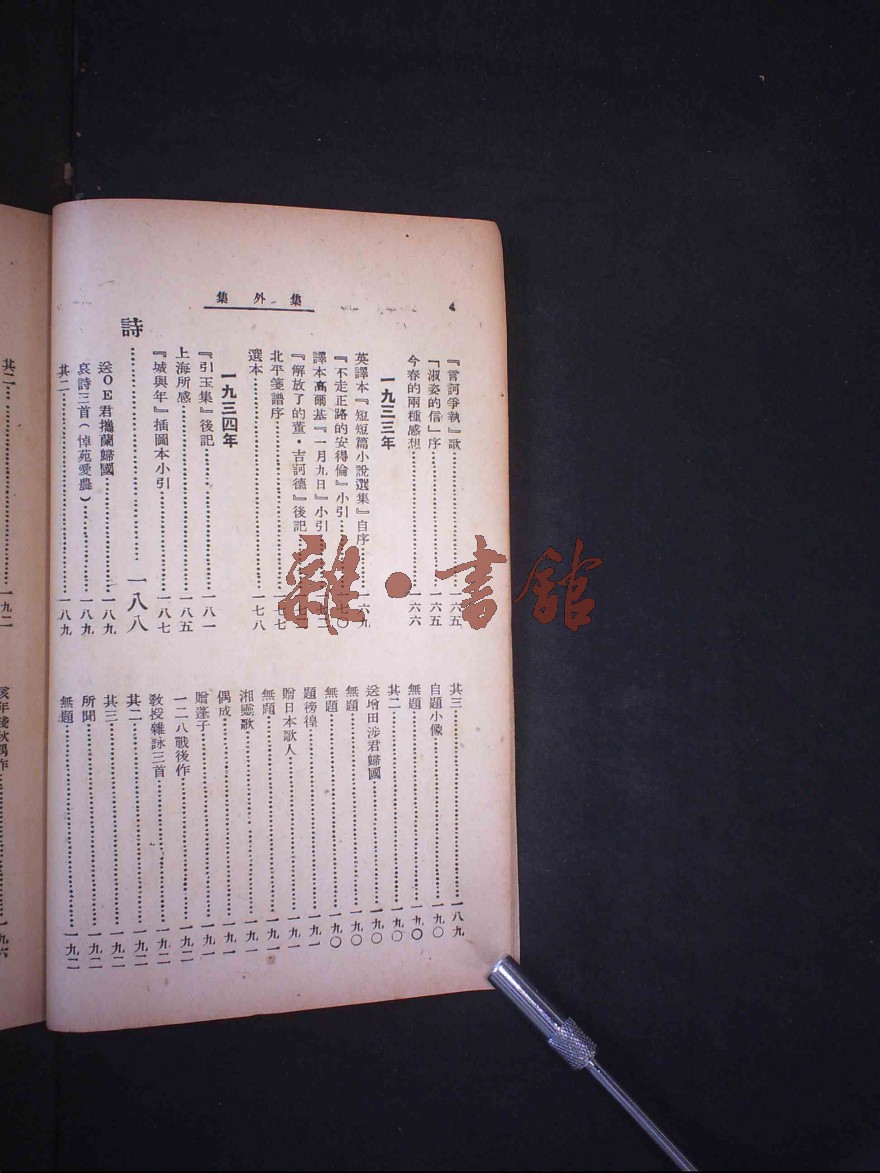 集外集
4
『言詞爭執』歌⋯⋯一六五
「淑姿的信」序⋯⋯一六五
今春的兩種感想⋯⋯一六六
一九三三年
英譯本『短短篇小說選集』自序⋯⋯一六九
『不走正路的安得倫』小引⋯⋯一七〇
譯本高爾基『一月九日』小引
『解放了的董・吉訶德』後記
北平箋譜序⋯⋯一七七
選本⋯⋯一七八
一九三四年
『引玉集』後記⋯⋯一八一
上海所感⋯⋯一八五
『城與年』插圖本小引⋯⋯一八七
詩⋯⋯一八八
送OE君攜蘭歸國⋯⋯一八九
哀詩三首(悼范愛農)⋯⋯一八九
其二⋯⋯一八九
其三⋯⋯一八九
自題小像⋯⋯一九〇
無題⋯⋯一九〇
其二⋯⋯一九〇
送增田涉君歸國⋯⋯一九〇
無題⋯⋯一九〇
無題⋯⋯一九〇
題徬徨⋯⋯一九一
贈日本歌人⋯⋯一九一
無題⋯⋯一九一
湘靈歌⋯⋯一九一
偶成⋯⋯一九一
贈蓬子⋯⋯一九一
一二八戰後作⋯⋯一九二
敎授雜詠三首⋯⋯一九二
其二⋯⋯一九二
其三⋯⋯一九二
所聞⋯⋯一九二
無題⋯⋯一九二
其二⋯⋯一九二
亥年殘秋偶作⋯⋯一九六
雜・書館